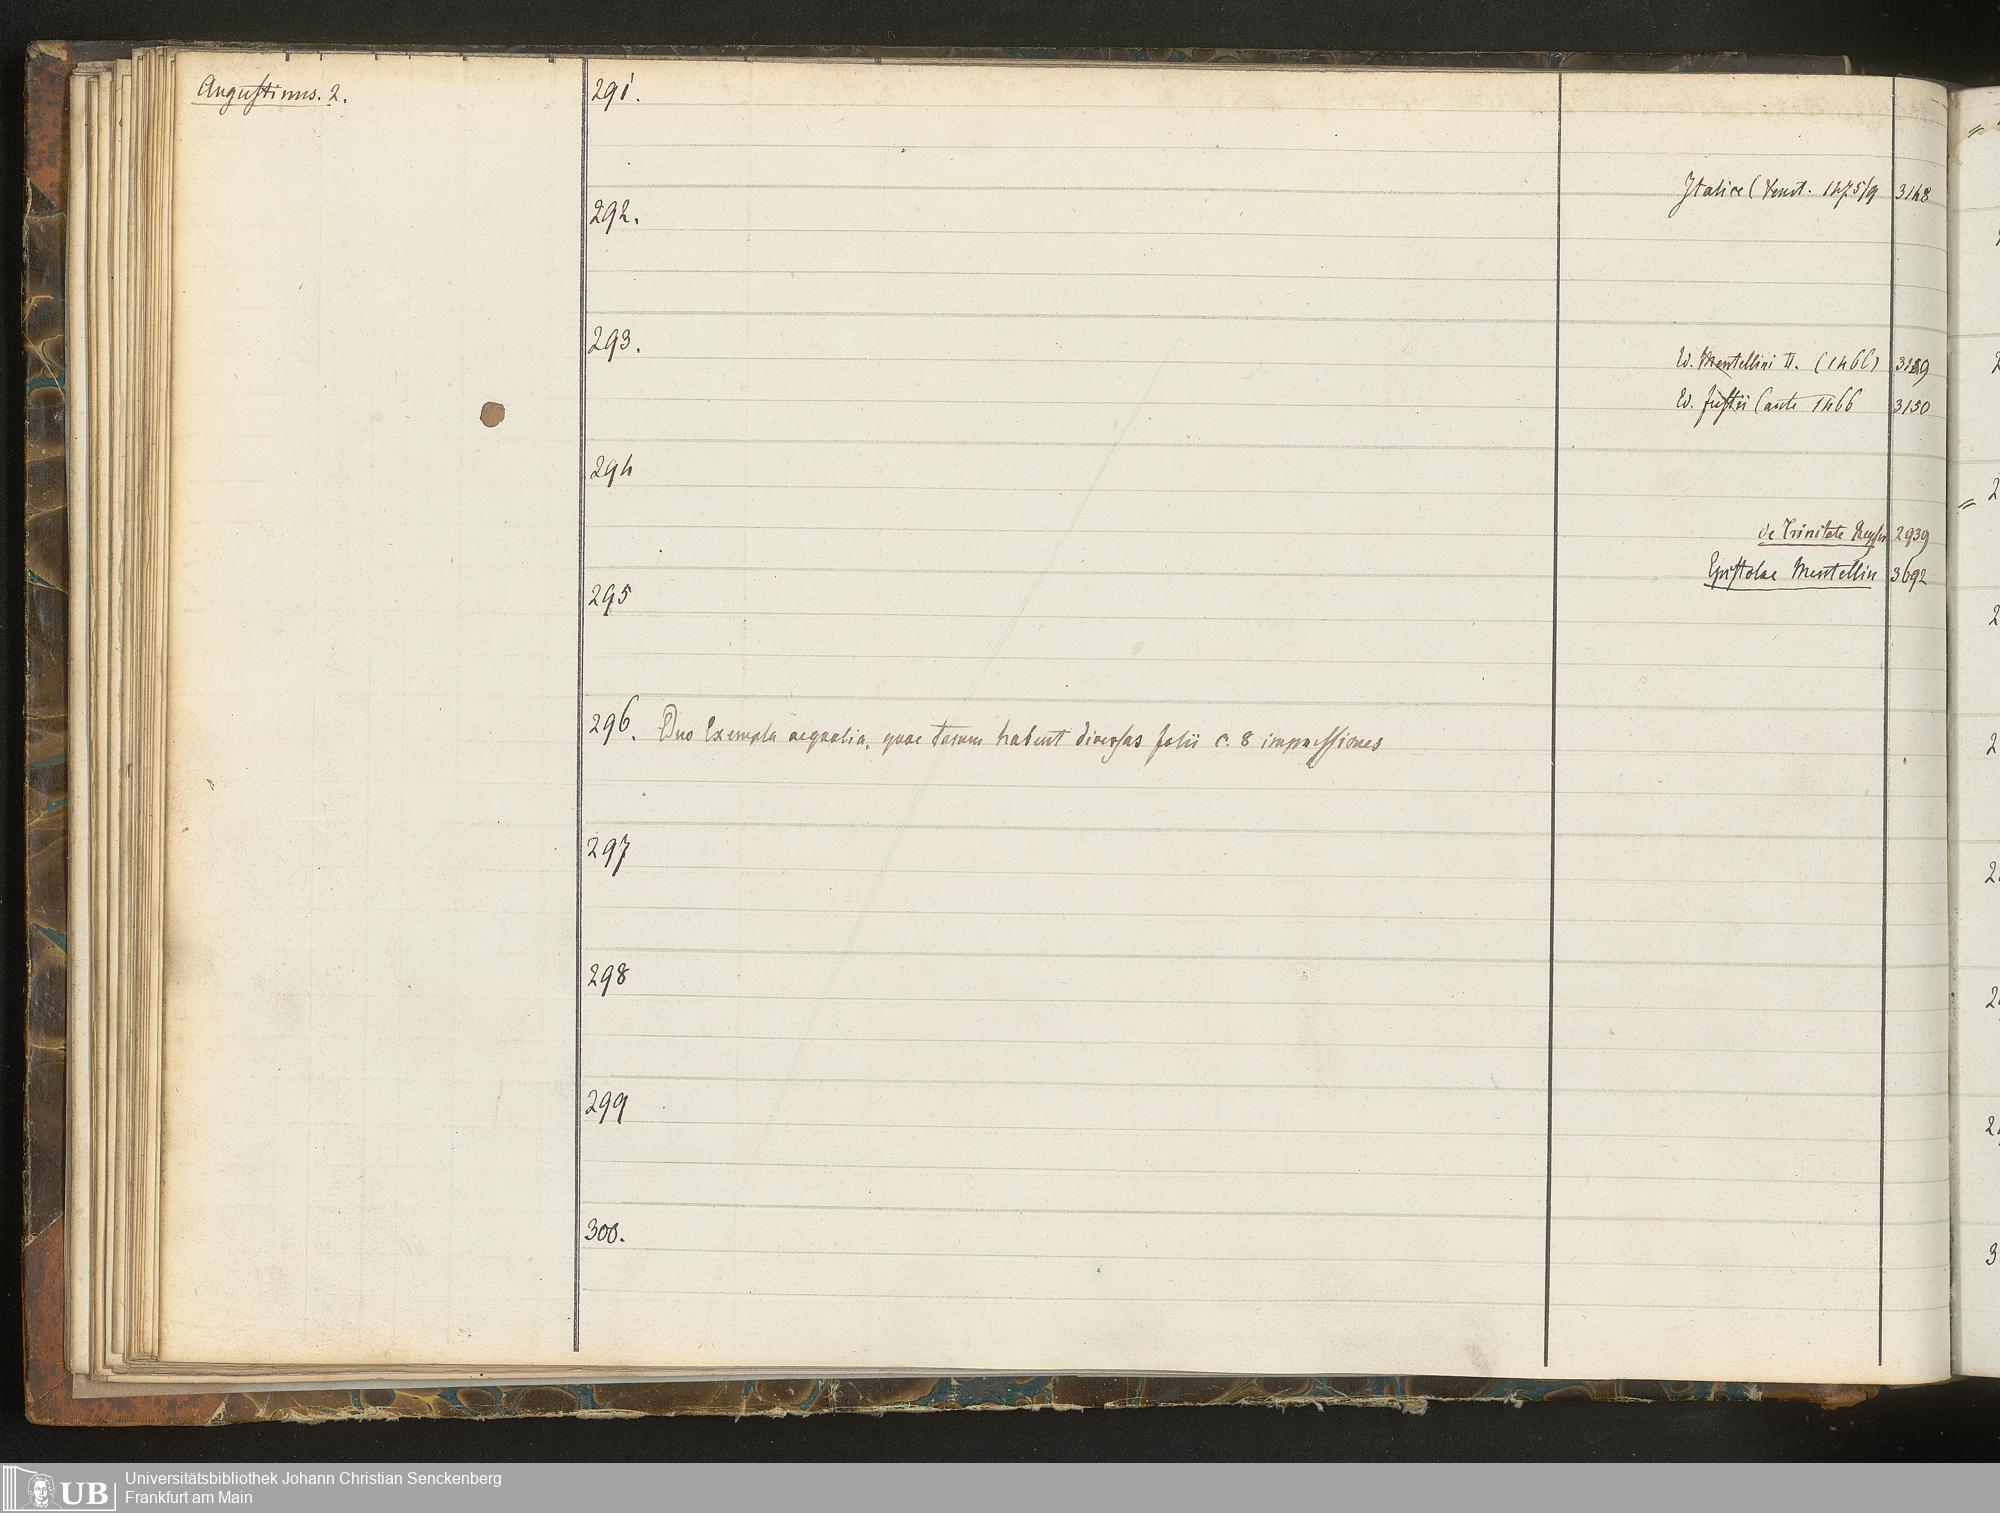 Augustinus. 2.
291.
Italice (Venet. 1475/9 3148
292.
293.
Ed. Mentellini II. (1466) 3149
Ed. Fustii (ante 1466 3150
294
de Trinitate 2939
Epistolae Mentellin 3692
295
296. Duo Exempla aequalia, quae tamen habent diversas folii c. 8 impressiones
297
298
299
300.
UB
Universitätsbibliothek Johann Christian Senckenberg
Frankfurt am Main